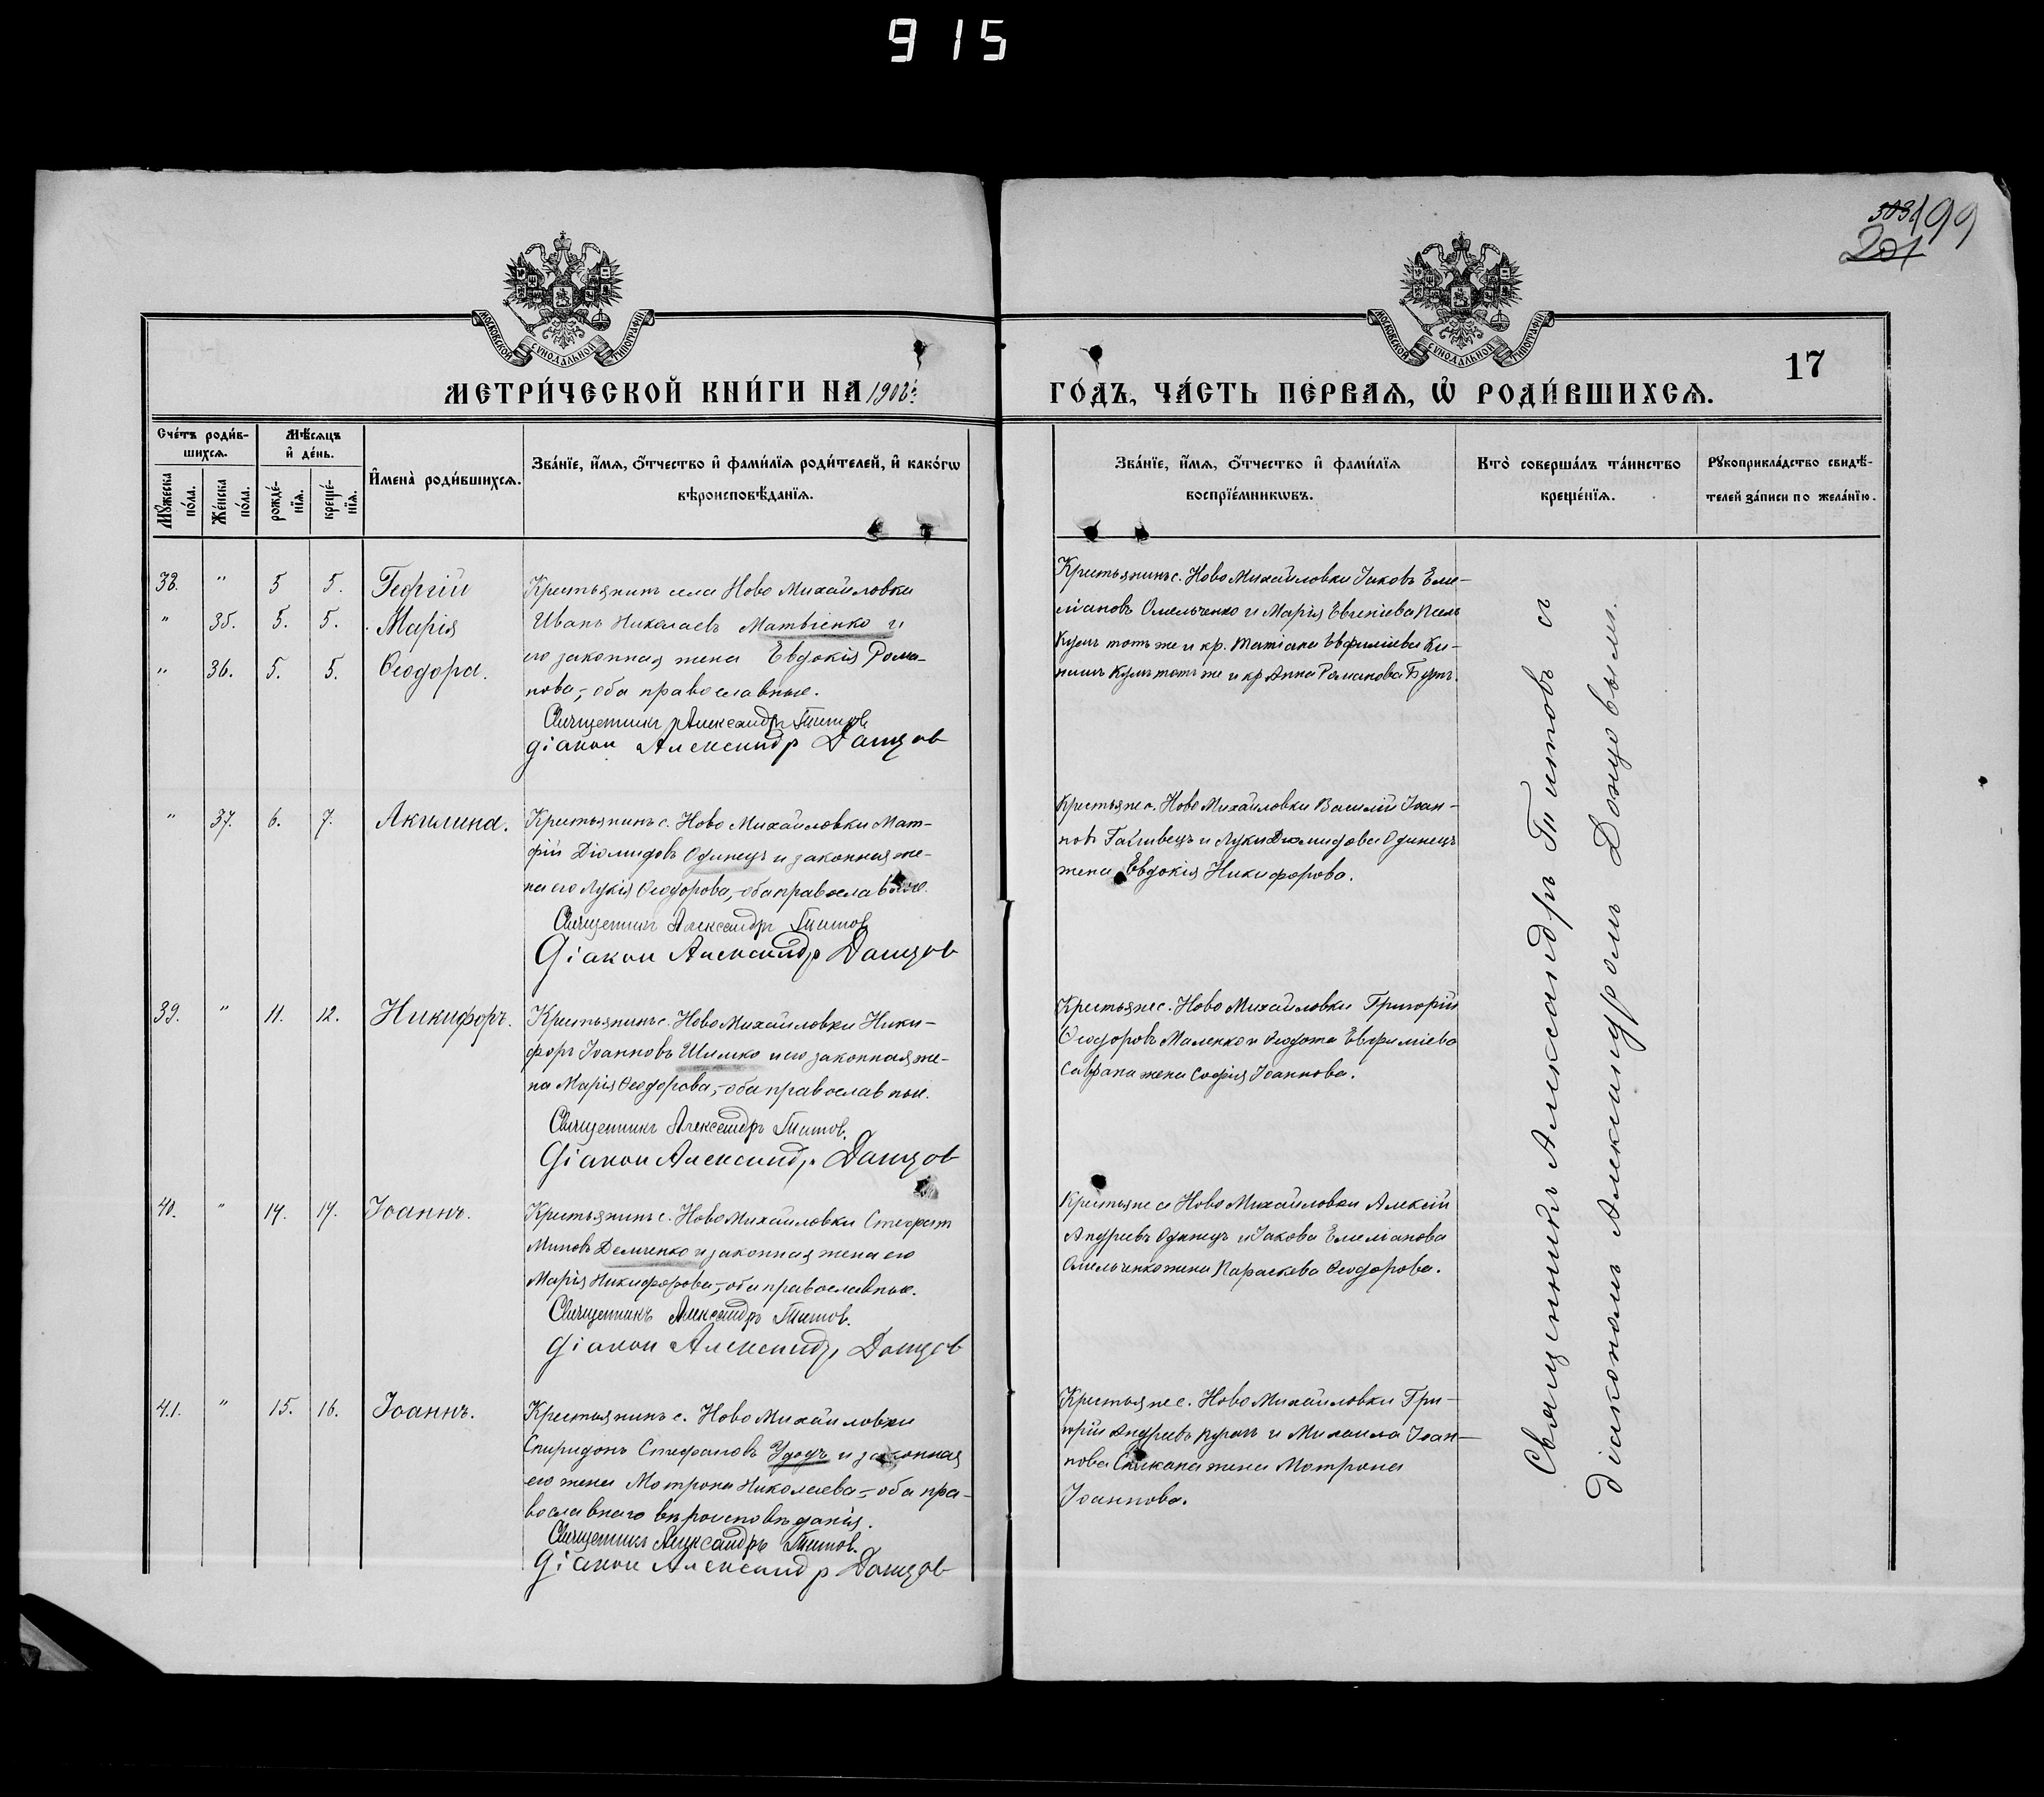 915
303 199
201
МОСКОВСКОЙ СѴНОДАЛЬНОЙ ТИПОГРАФІИ
МОСКОВСКОЙ СѴНОДАЛЬНОЙ ТИПОГРАФІИ
17
МЕТРИ́ЧЕСКОЙ КНИ́ГИ НА 1902 г. ГО́ДЪ, ЧА́СТЬ ПЕ́РВАѦ, Ѡ҆ РОДИ́ВШИХСѦ.
Сче́тъ роди́в-
шихсѧ.
Мꙋ́жеска по́ла.
Же́нска по́ла.
Мѣ́сѧцъ
и҆ де́нь.
рожде́-
нїѧ.
креще́-
нїѧ.
И҆мена̀ роди́вшихсѧ.
Зва́нїе, и҆́мѧ, ѻ҆́тчество и҆ фами́лїѧ роди́телей, и҆ како́гѡ
вѣроисповѣ́данїѧ.
Зва́нїе, и҆́мѧ, ѻ҆́тчество и҆ фами́лїѧ
воспрїе́мникѡвъ.
Кто̀ соверша́лъ та́инство
креще́нїѧ.
Рꙋкоприкла́дство свидѣ́-
телей за́писи по жела́нїю.
38. " 5 5. Георгій
" 35. 5. 5. Марія
" 36. 5. 5. Ѳеодора.
Крестьянинъ села Ново Михайловки
Иванъ Николаевъ Матвіенко и
его законная жена Евдокія Рома-
нова, - оба православные.
Священникъ Александръ Титов
Діакон Александр Данцов
Крестьянинъ с. Ново Михайловки Іаковъ Еме-
ліановъ Омельченко и Марія Евгеніева
тотъ же и кр. Татіана Евфиміева Ки-
тотъ же и кр Анна Романова
" 37. 6. 7. Акилина.
Крестьянинъ с. Ново Михайловки Мат-
фій Діомидовъ Одинецъ и законная же-
на его Лукія Ѳеодорова, - оба православные.
Священникъ Александръ Титов
Діакон Александр Данцов
Крестьяне с. Ново Михайловки Василій Іоан-
новъ и Луки Діомидова Одинецъ
жена Евдокія Никифорова.
39. " 11. 12. Никифоръ.
Крестьянинъ с. Ново Михайловки Ники-
форъ Іоанновъ Шишко и его законная же-
на Марія Ѳеодорова, - оба православные.
Священникъ Александръ Титов.
Діакон Александр Данцов
Крестьяне с. Ново Михайловки Григорій
Ѳеодоровъ Маленко и Ѳеодота Евфиміева
Саврана жена Софія Іоаннова.
40. " 14. 14. Іоаннъ.
Крестьянинъ с. Ново Михайловки Стефанъ
Миновъ Демченко и законная жена его
Марія Никифорова, - оба православные.
Священникъ Александръ Титов.
Діакон Александр Данцов
Крестьяне с Ново Михайловки Алексій
Андреевъ Одинецъ и Іакова Емеліанова
Омельченко жена Параскева Ѳеодорова.
41. " 15. 16. Іоаннъ.
Крестьянинъ с. Ново Михайловки
Спиридонъ Стефановъ Удодъ и законная
его жена Мотрона Николаева - оба пра-
вославнаго вѣроисповѣданія.
Священникъ Александръ Титов.
Діакон Александр Данцов
Крестьяне с. Ново Михайловки Гри-
горій Андреевъ и Михаила Іоан-
нова жена Мотрона
Іоаннова.
Священникъ Александръ Титовъ съ
діакономъ Александромъ Донцовымъ.